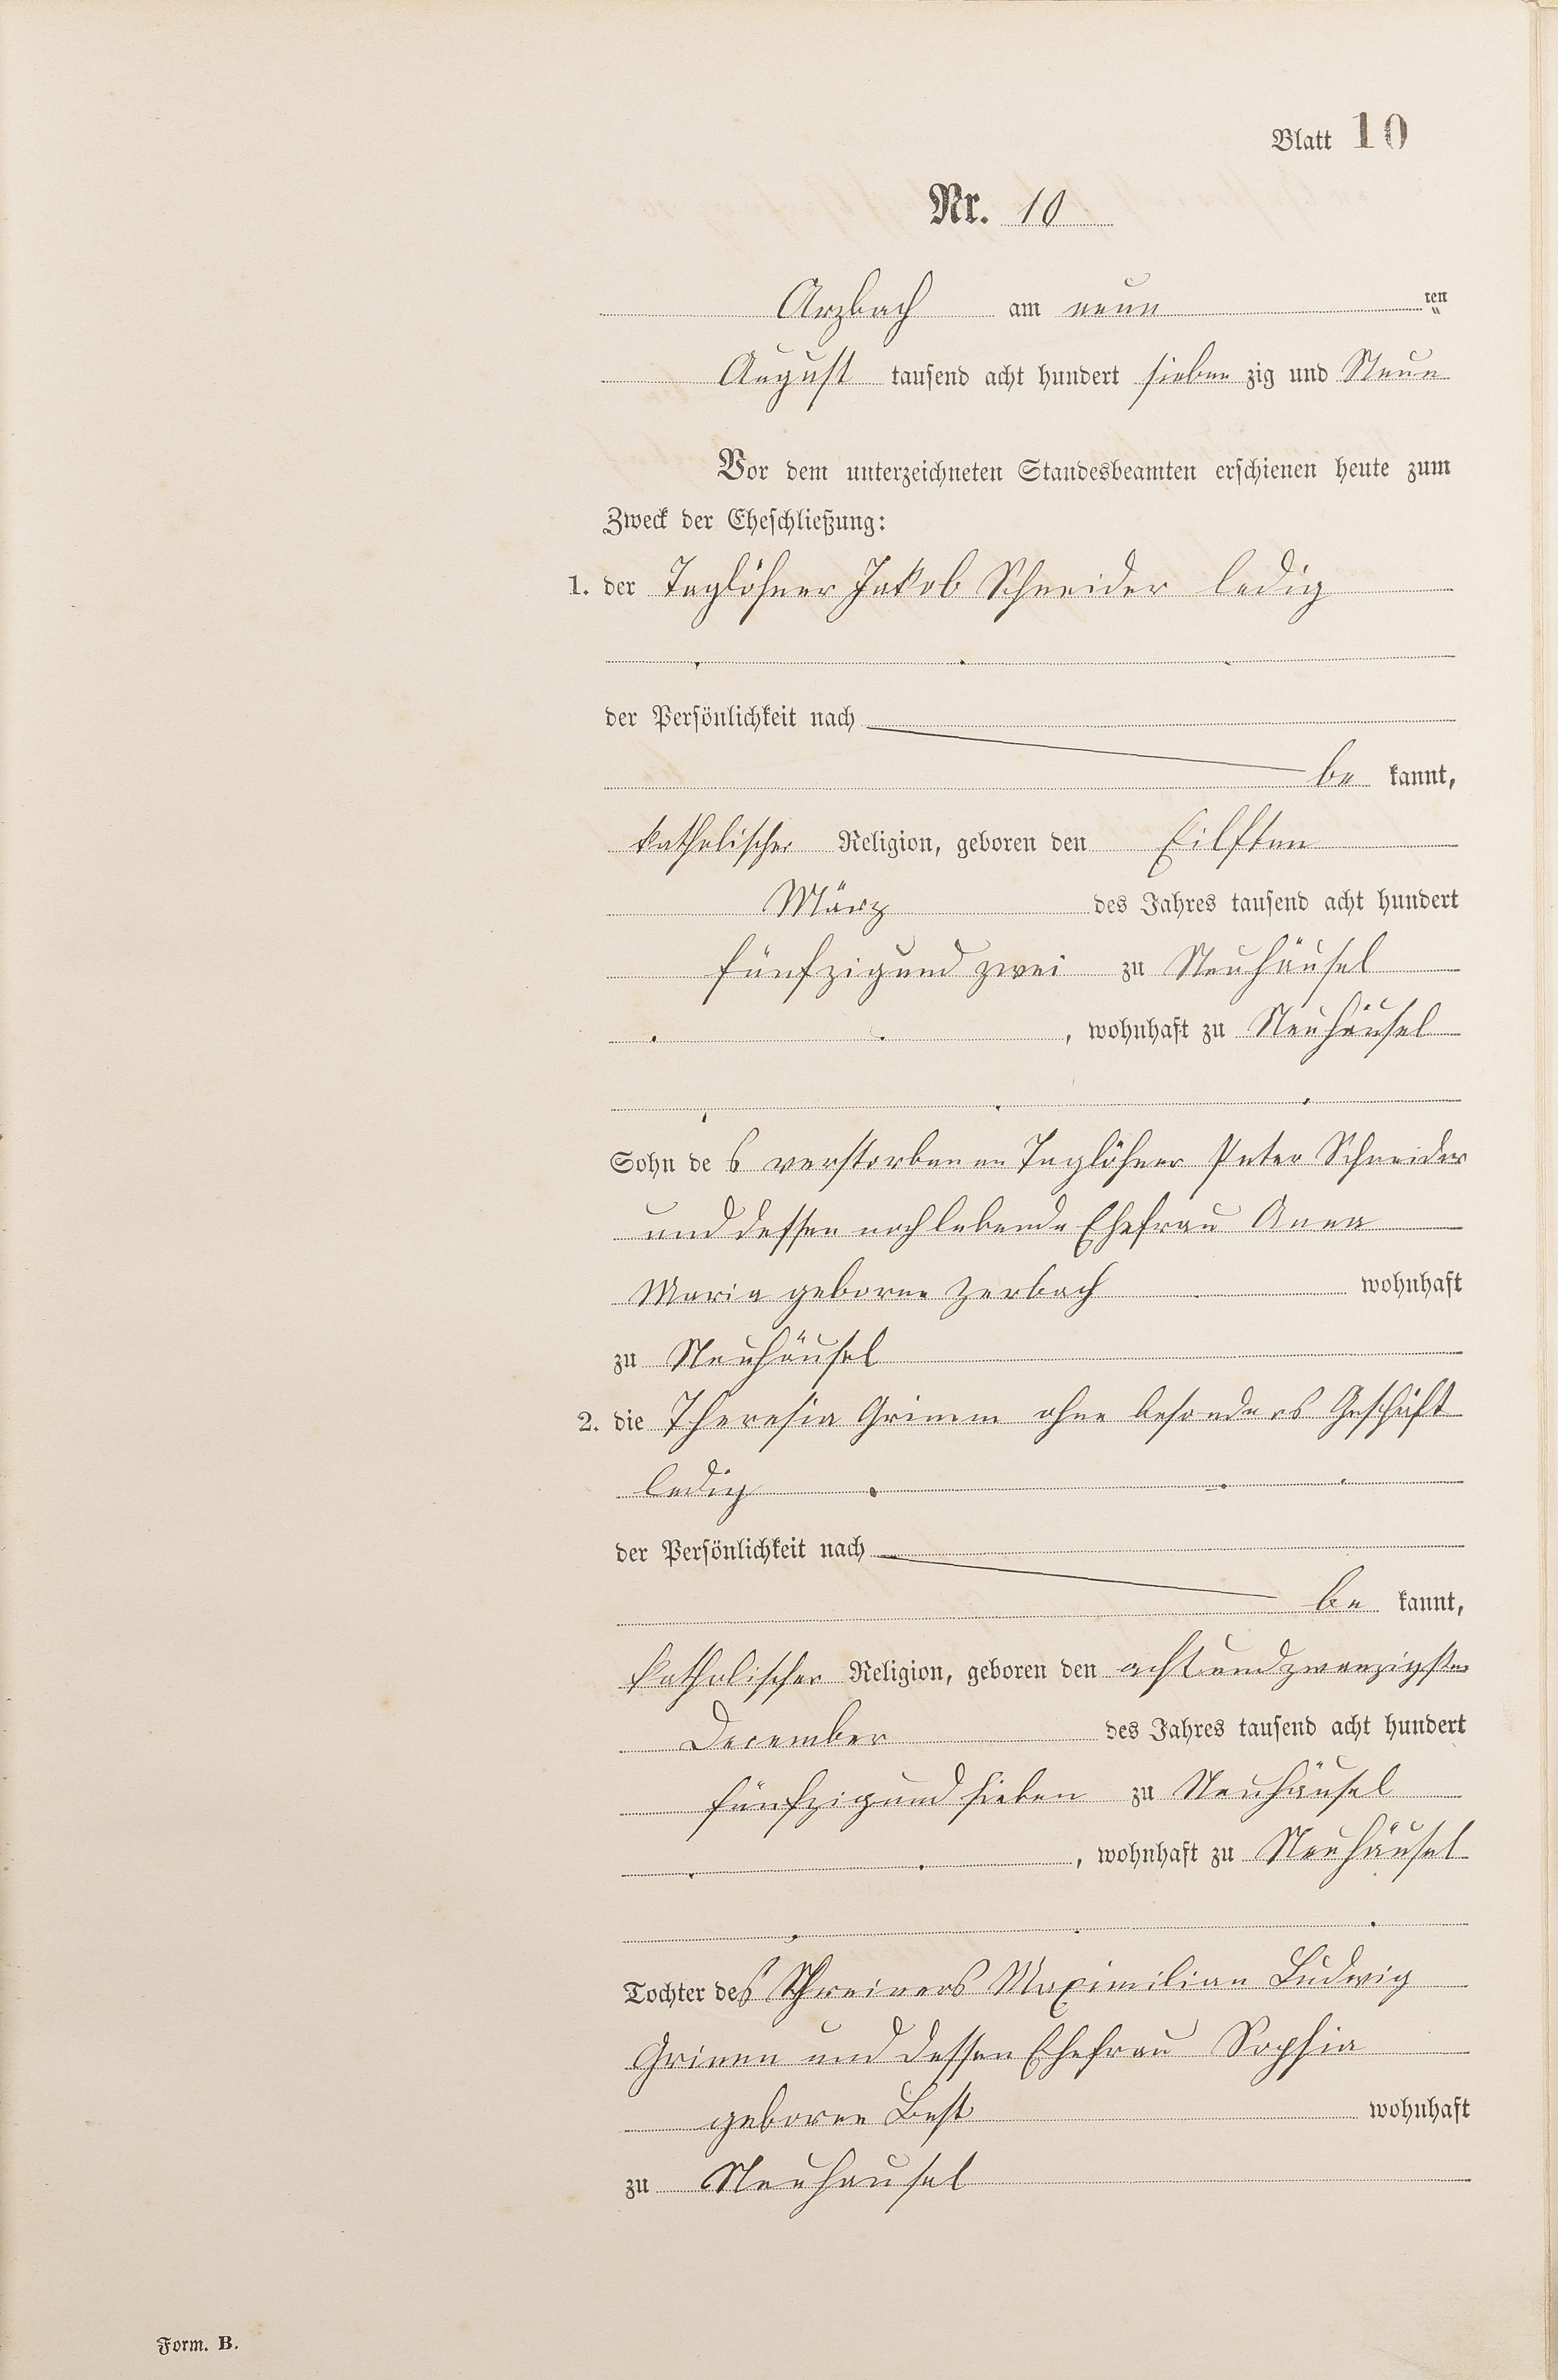 Blatt 10
Nr. 10
Arzbach am neun ten
August tausend acht hundert sieben zig und Neun
Vor dem unterzeichneten Standesbeamten erschienen heute zum
Zweck der Eheschließung:
1. der Taglöhner Jakob Schneider ledig
der Persönlichkeit nach
be kannt,
katholischer Religion, geboren den Eilften
März des Jahres tausend acht hundert
fünfzigund zwei zu Neuhäusel
, wohnhaft zu Neuhäusel
Sohn de s verstorbenen Taglöhner Peter Schneider
und dessen noch lebende Ehefrau Anna
Maria geborne Zerbach wohnhaft
zu Neuhäusel
2. die Theresia Grimm ohne besonders Geschäft
ledig
der Persönlichkeit nach
be kannt,
katholischer Religion, geboren den achtundzwanzigsten
December des Jahres tausend acht hundert
fünfzigund sieben zu Neuhäusel
, wohnhaft zu Neuhäusel
Tochter des Schreiners Maximilian Ludwig
Grimm und dessen Ehefrau Sophia
geborne Best wohnhaft
zu Neuhausel
Form. B.